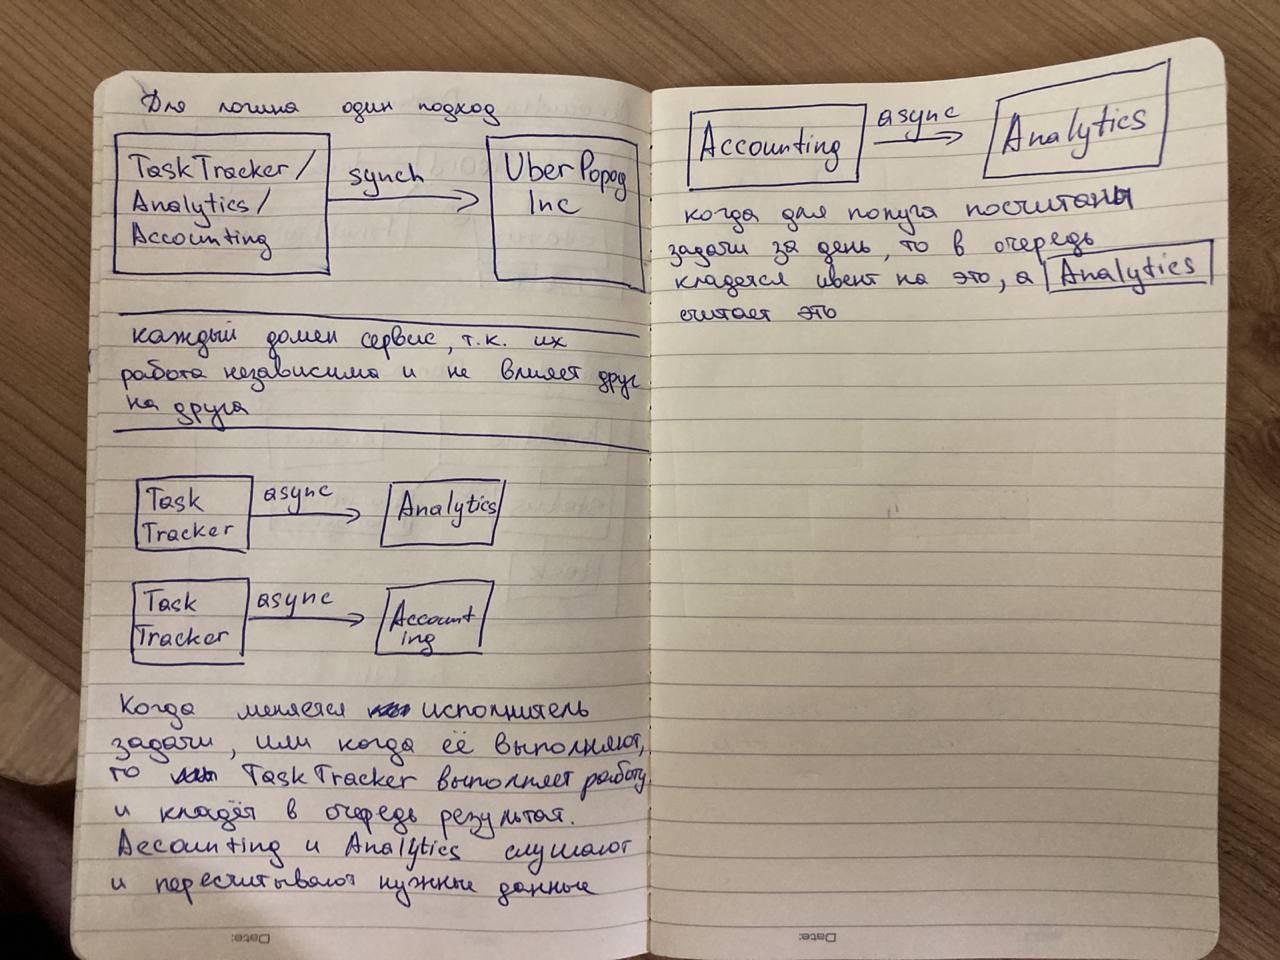 Для логина один подход
TaskTracker/
Analytics/
Accounting
synch
UberPopug
Inc
каждый домен сервис, т.к. их
работа независима и не влияет друг
на друга
Task
Tracker
async
Analytics
Task
Tracker
async
Account
ing
Когда меняется исполнитель
задачи, или когда её выполняют,
то TaskTracker выполняет работу
и кладёт в очередь результат.
Accounting и Analytics слушают
и пересчитывают нужные данные
Date:
Accounting
async
Analytics
когда для попуга посчитаны
задачи за день, то в очередь
кладется ивент на это, а Analytics
считает это
Date: